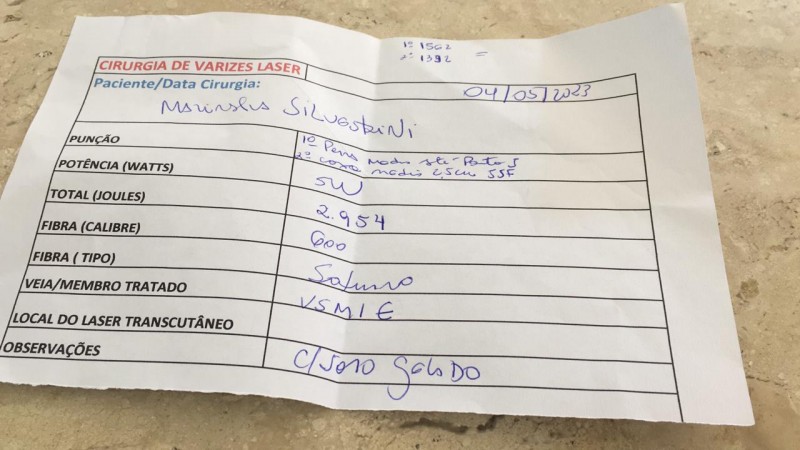 1º 1562 =
2º 1392
CIRURGIA DE VARIZES LASER
Paciente/Data Cirurgia: 04/05/2023
SILVESTRINI
PUNÇÃO 1º Perna média até Ponto J
2º coxa média 2,5cm SSF
POTÊNCIA (WATTS) 5W
TOTAL (JOULES) 2.954
FIBRA (CALIBRE) 600
FIBRA ( TIPO) Saturno
VEIA/MEMBRO TRATADO VSMIE
LOCAL DO LASER TRANSCUTÂNEO
OBSERVAÇÕES C/Soro gelado